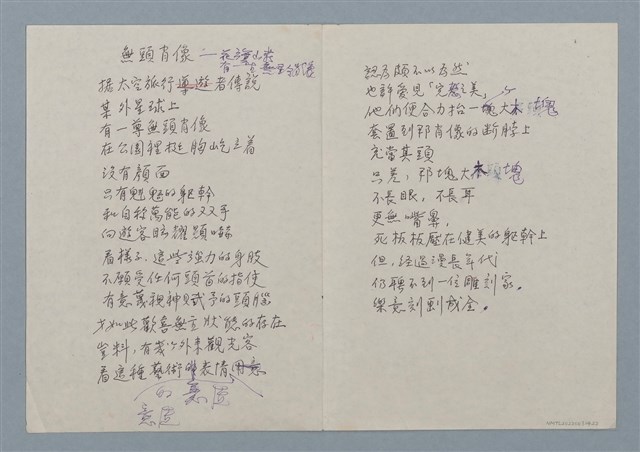 無頭肖像
據太空旅行導遊者傳說
某外星球上
有一尊無頭肖像
在公園裡挺胸屹立着
沒有顏面
只有魁魁的軀幹
和自稱萬能的双手
向遊客眩耀顯嚇
看樣子，這些強力的身肢
不願受任何頭首的指使
有意蔑視神賦予的頭腦
才如此歡喜無首狀態的存在
豈料，有幾個外來觀光客
看這種藝術的表情
的意圖
意圖
認為頗不以為然
也許愛見「完整之美」
他們便合力抬一塊大木頭塊
套置到那肖像的断脖上
充當其頭
只差，那塊大木頭塊
不長眼，不長耳
更無嘴鼻，
死板板壓在健美的軀幹上
但，經過漫長年代
仍聘不到一位雕刻家。
樂意刻劃成全。